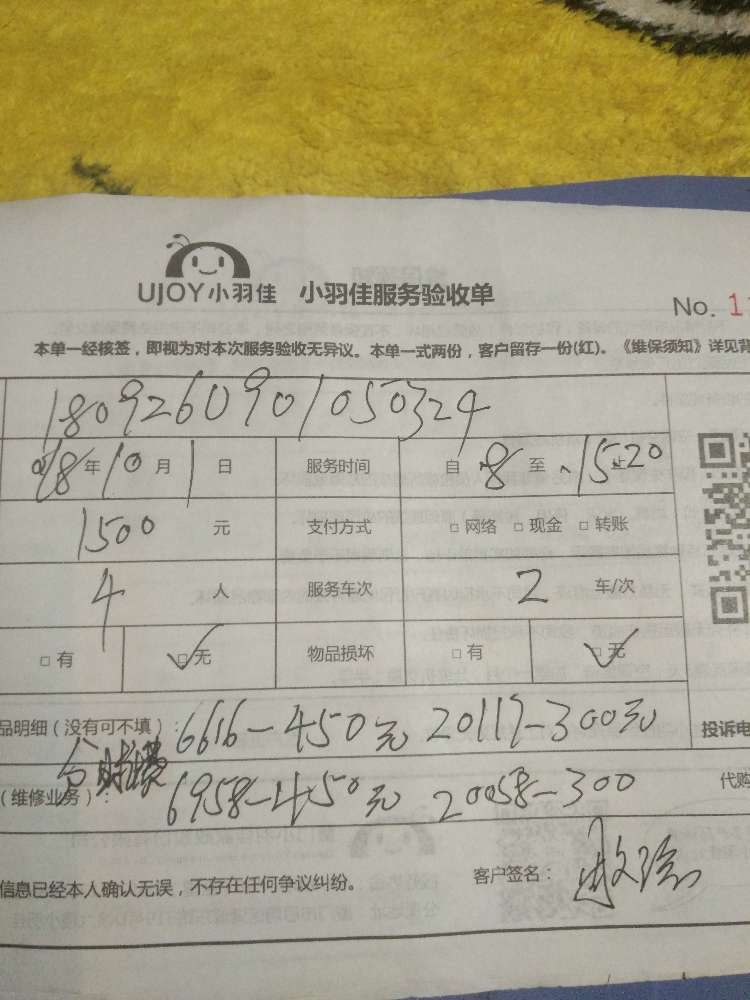 UJOY小羽佳 小羽佳服务验收单
No. 1
本单一经核签，即视为对本次服务验收无异议。本单一式两份，客户留存一份(红)。《维保须知》详见背
1809260901050324
18年10月1日 服务时间 自8至15:20止
1500元 支付方式 □网络 □现金 □转账
4人 服务车次 2车/次
□有 □无 物品损坏 □有 □无
品明细（没有可不填）：6616-450元 20119-300元 投诉电
（维修业务）：6958-450元 20058-300 代购
信息已经本人确认无误，不存在任何争议纠纷。 客户签名：